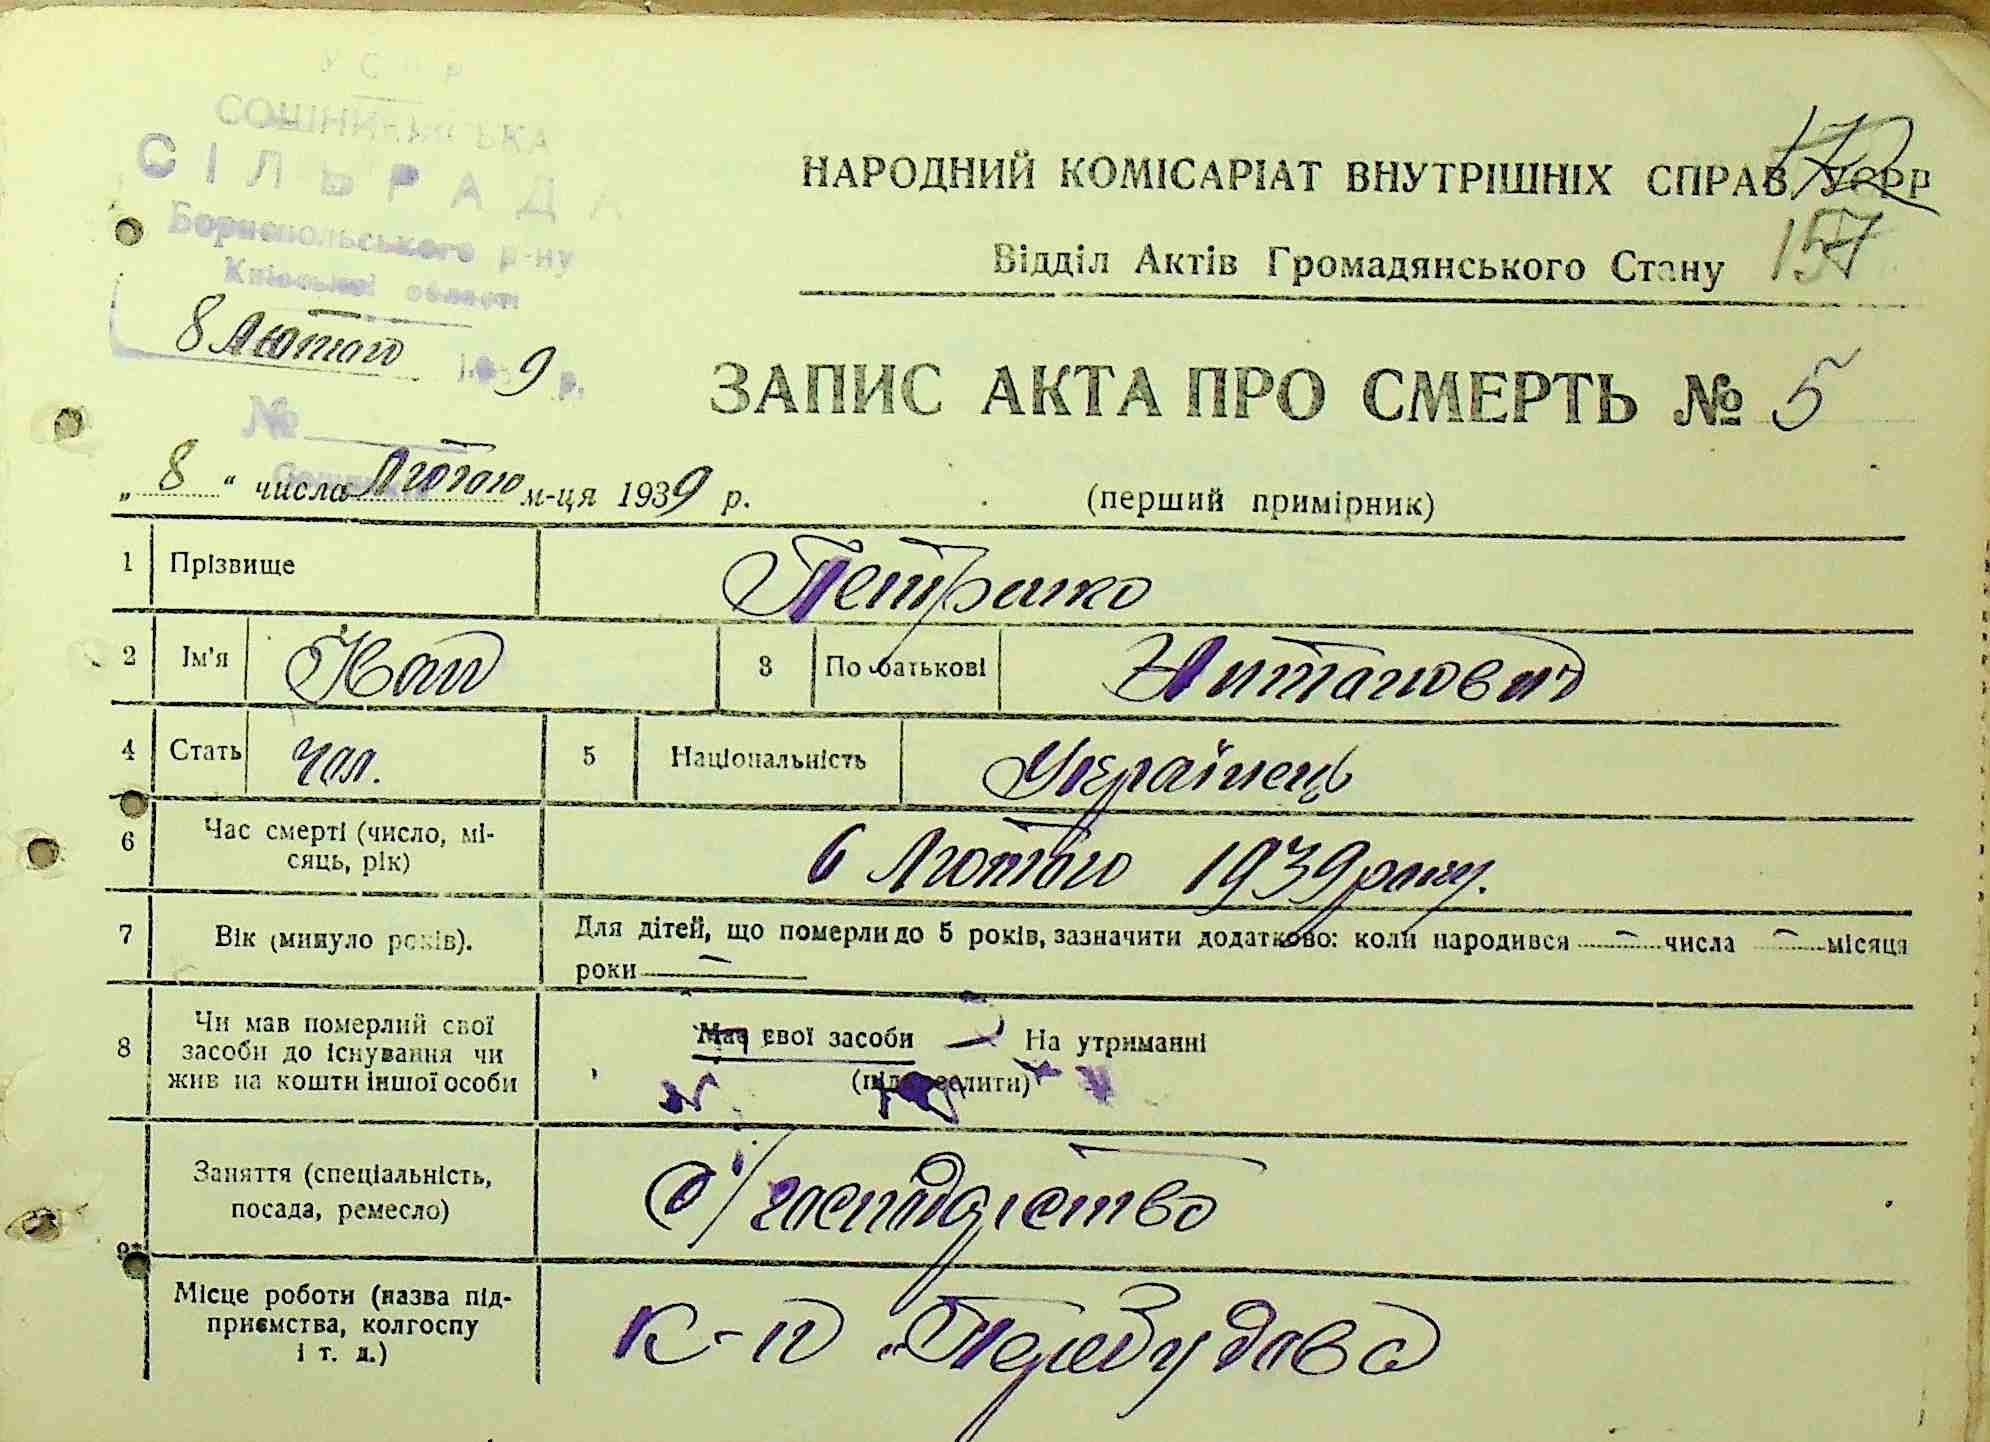 УСРР
СОШНИКІВСЬКА
СІЛЬРАДА
Бориспольського р-ну
Київської області
8 Лютого 1939 р.
№
НАРОДНИЙ КОМІСАРІАТ ВНУТРІШНІХ СПРАВ УСРР
172
157
Відділ Актів Громадянського Стану
ЗАПИС АКТА ПРО СМЕРТЬ № 5
„ 8 “ числа Лютого м-ця 1939 р. (перший примірник)
1 Прізвище Петренко
2 Ім'я Іван 3 По батькові
4 Стать чол. 5 Національність Українець
6 Час смерті (число, мі-
сяць, рік) 6 Лютого 1939 року.
7 Вік (минуло років). Для дітей, що померли до 5 років, зазначити додатково: коли народився — числа — місяця
роки —
8 Чи мав померлий свої
засоби до існування чи
жив на кошти іншої особи
Має свої засоби — На утриманні
(підкреслити)
9* Заняття (спеціальність,
посада, ремесло) с/господарство
Місце роботи (назва під-
приємства, колгоспу
і т. д.) к-п „Перебудова